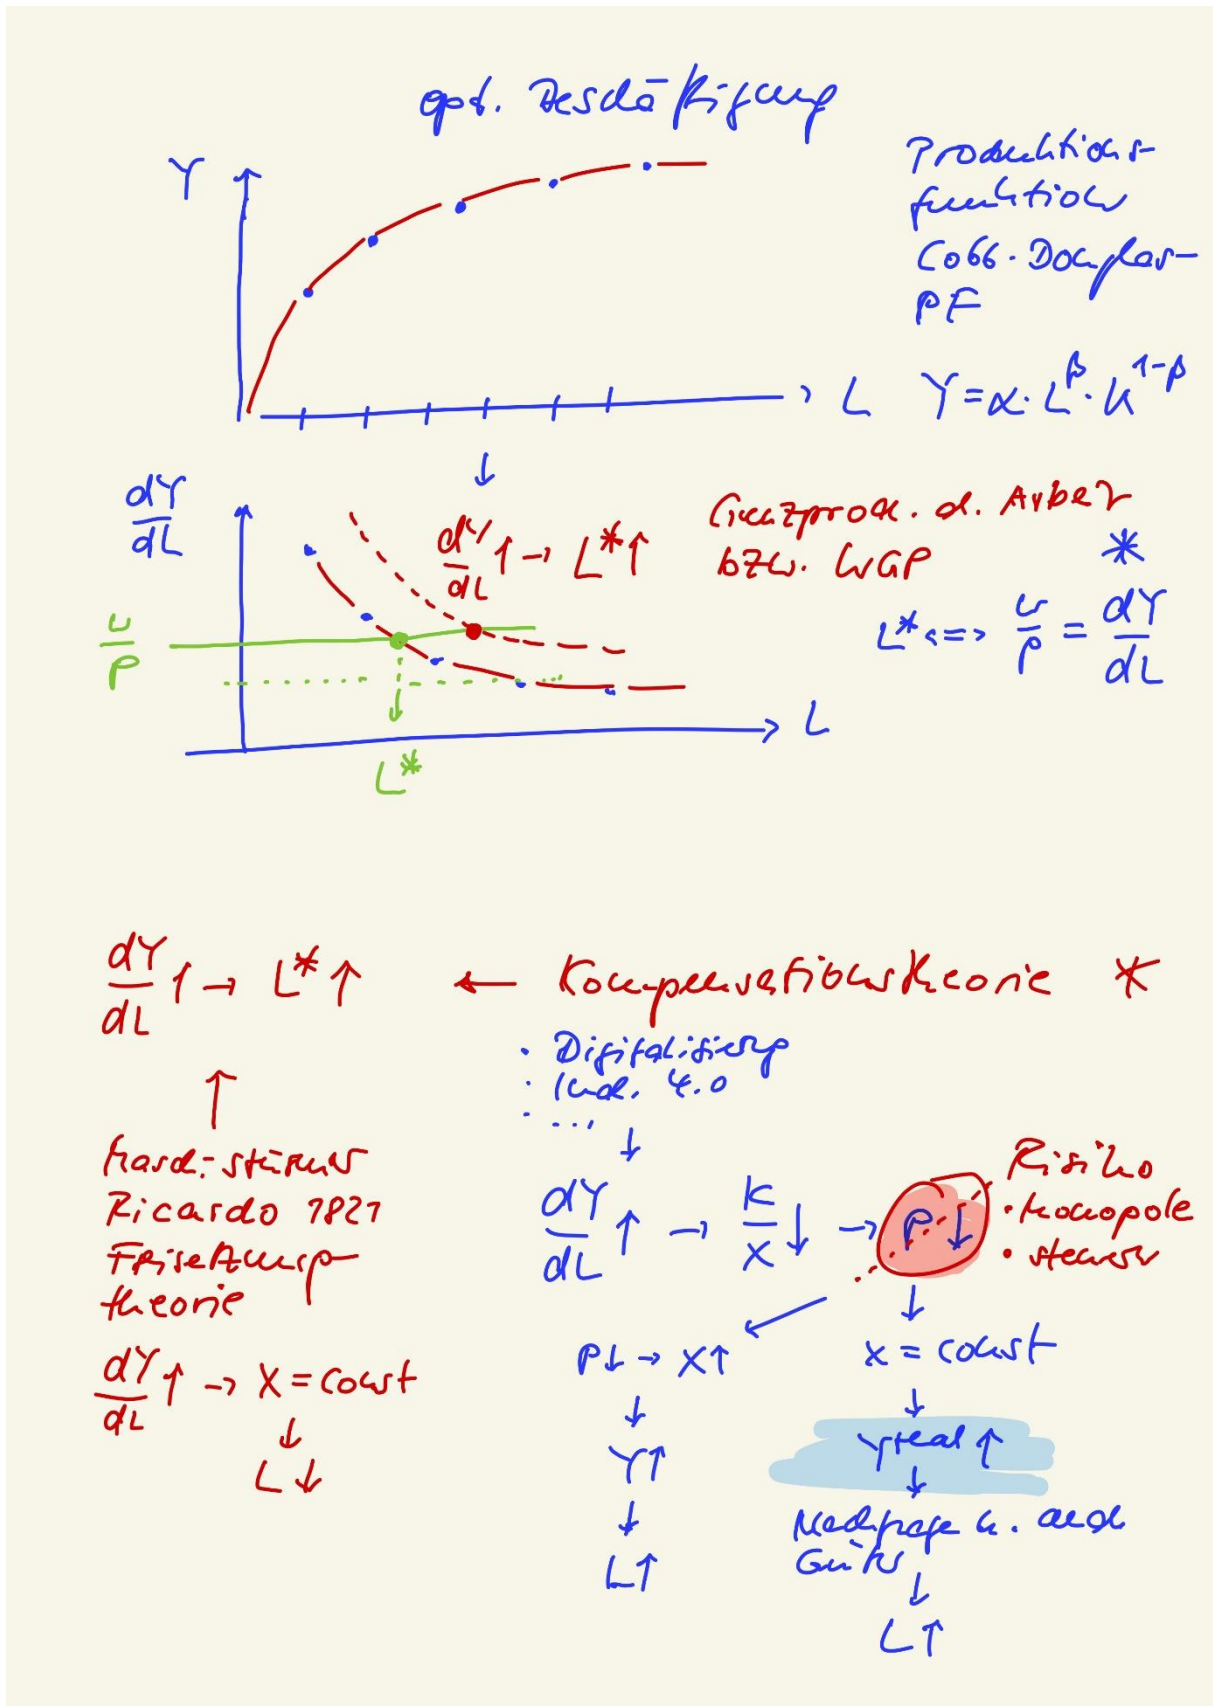 opt. Beschäftigung
Y
Produktions-
funktion
Cobb-Douglas-
PF
L
Y = α · L^β · K^(1-β)
dY/dL
Grenzprod. d. Arbeit
bzw. WGP
*
dY/dL ↑ → L* ↑
w/P
L* <=> w/P = dY/dL
L
L*
dY/dL ↑ → L* ↑ ← Kompensationstheorie *
· Digitalisierung
· Ind. 4.0
· ...
↓
dY/dL ↑ → K/x ↓ → P ↓
Risiko
· Monopole
· Steuern
↑
Masch.-stürmer
Ricardo 1821
Freisetzungs-
theorie
dY/dL ↑ → X = const
↓
L ↓
P↓ → X↑
↓
Y↑
↓
L↑
↓
x = const
↓
Yreal ↑
↓
Nachfrage n. and
Güter
↓
L↑